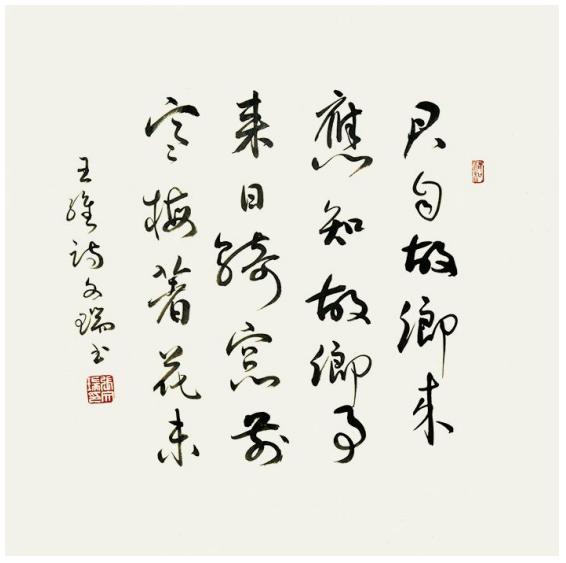 君自故鄉來
應知故鄉事
來日綺窓前
寒梅著花未
王維詩文瑞书